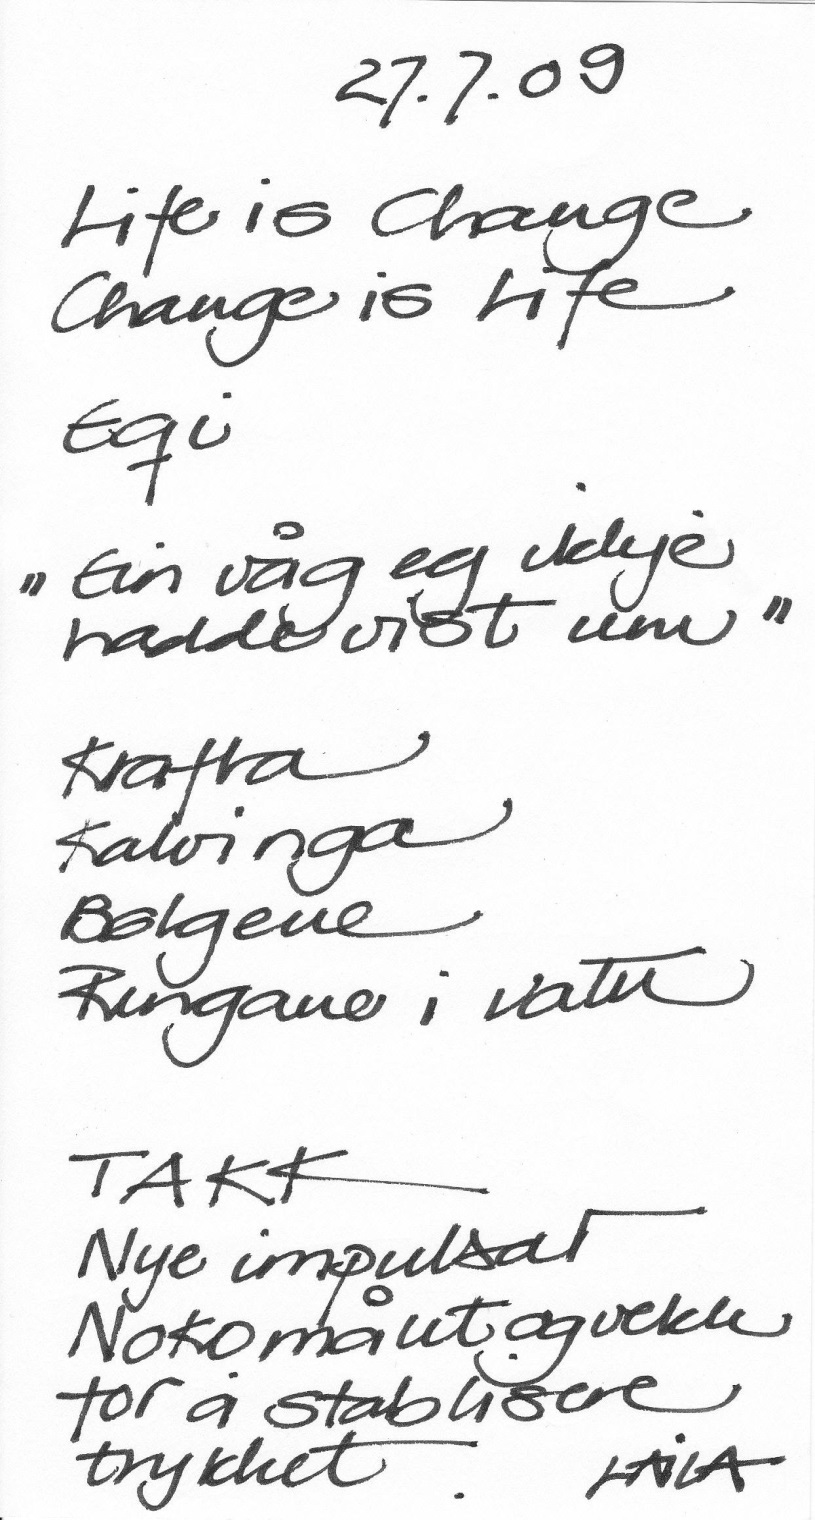 27.7.09
Life is Change
Change is Life
Eqi
"Ein våg eg ikkje
hadde vist um"
Krafta
Kalvinga
Bølgene
Ringane i vatn
TAKK
Nye impulsar
Noko må ut og vekk
for å stablisere
trykket.
LAILA